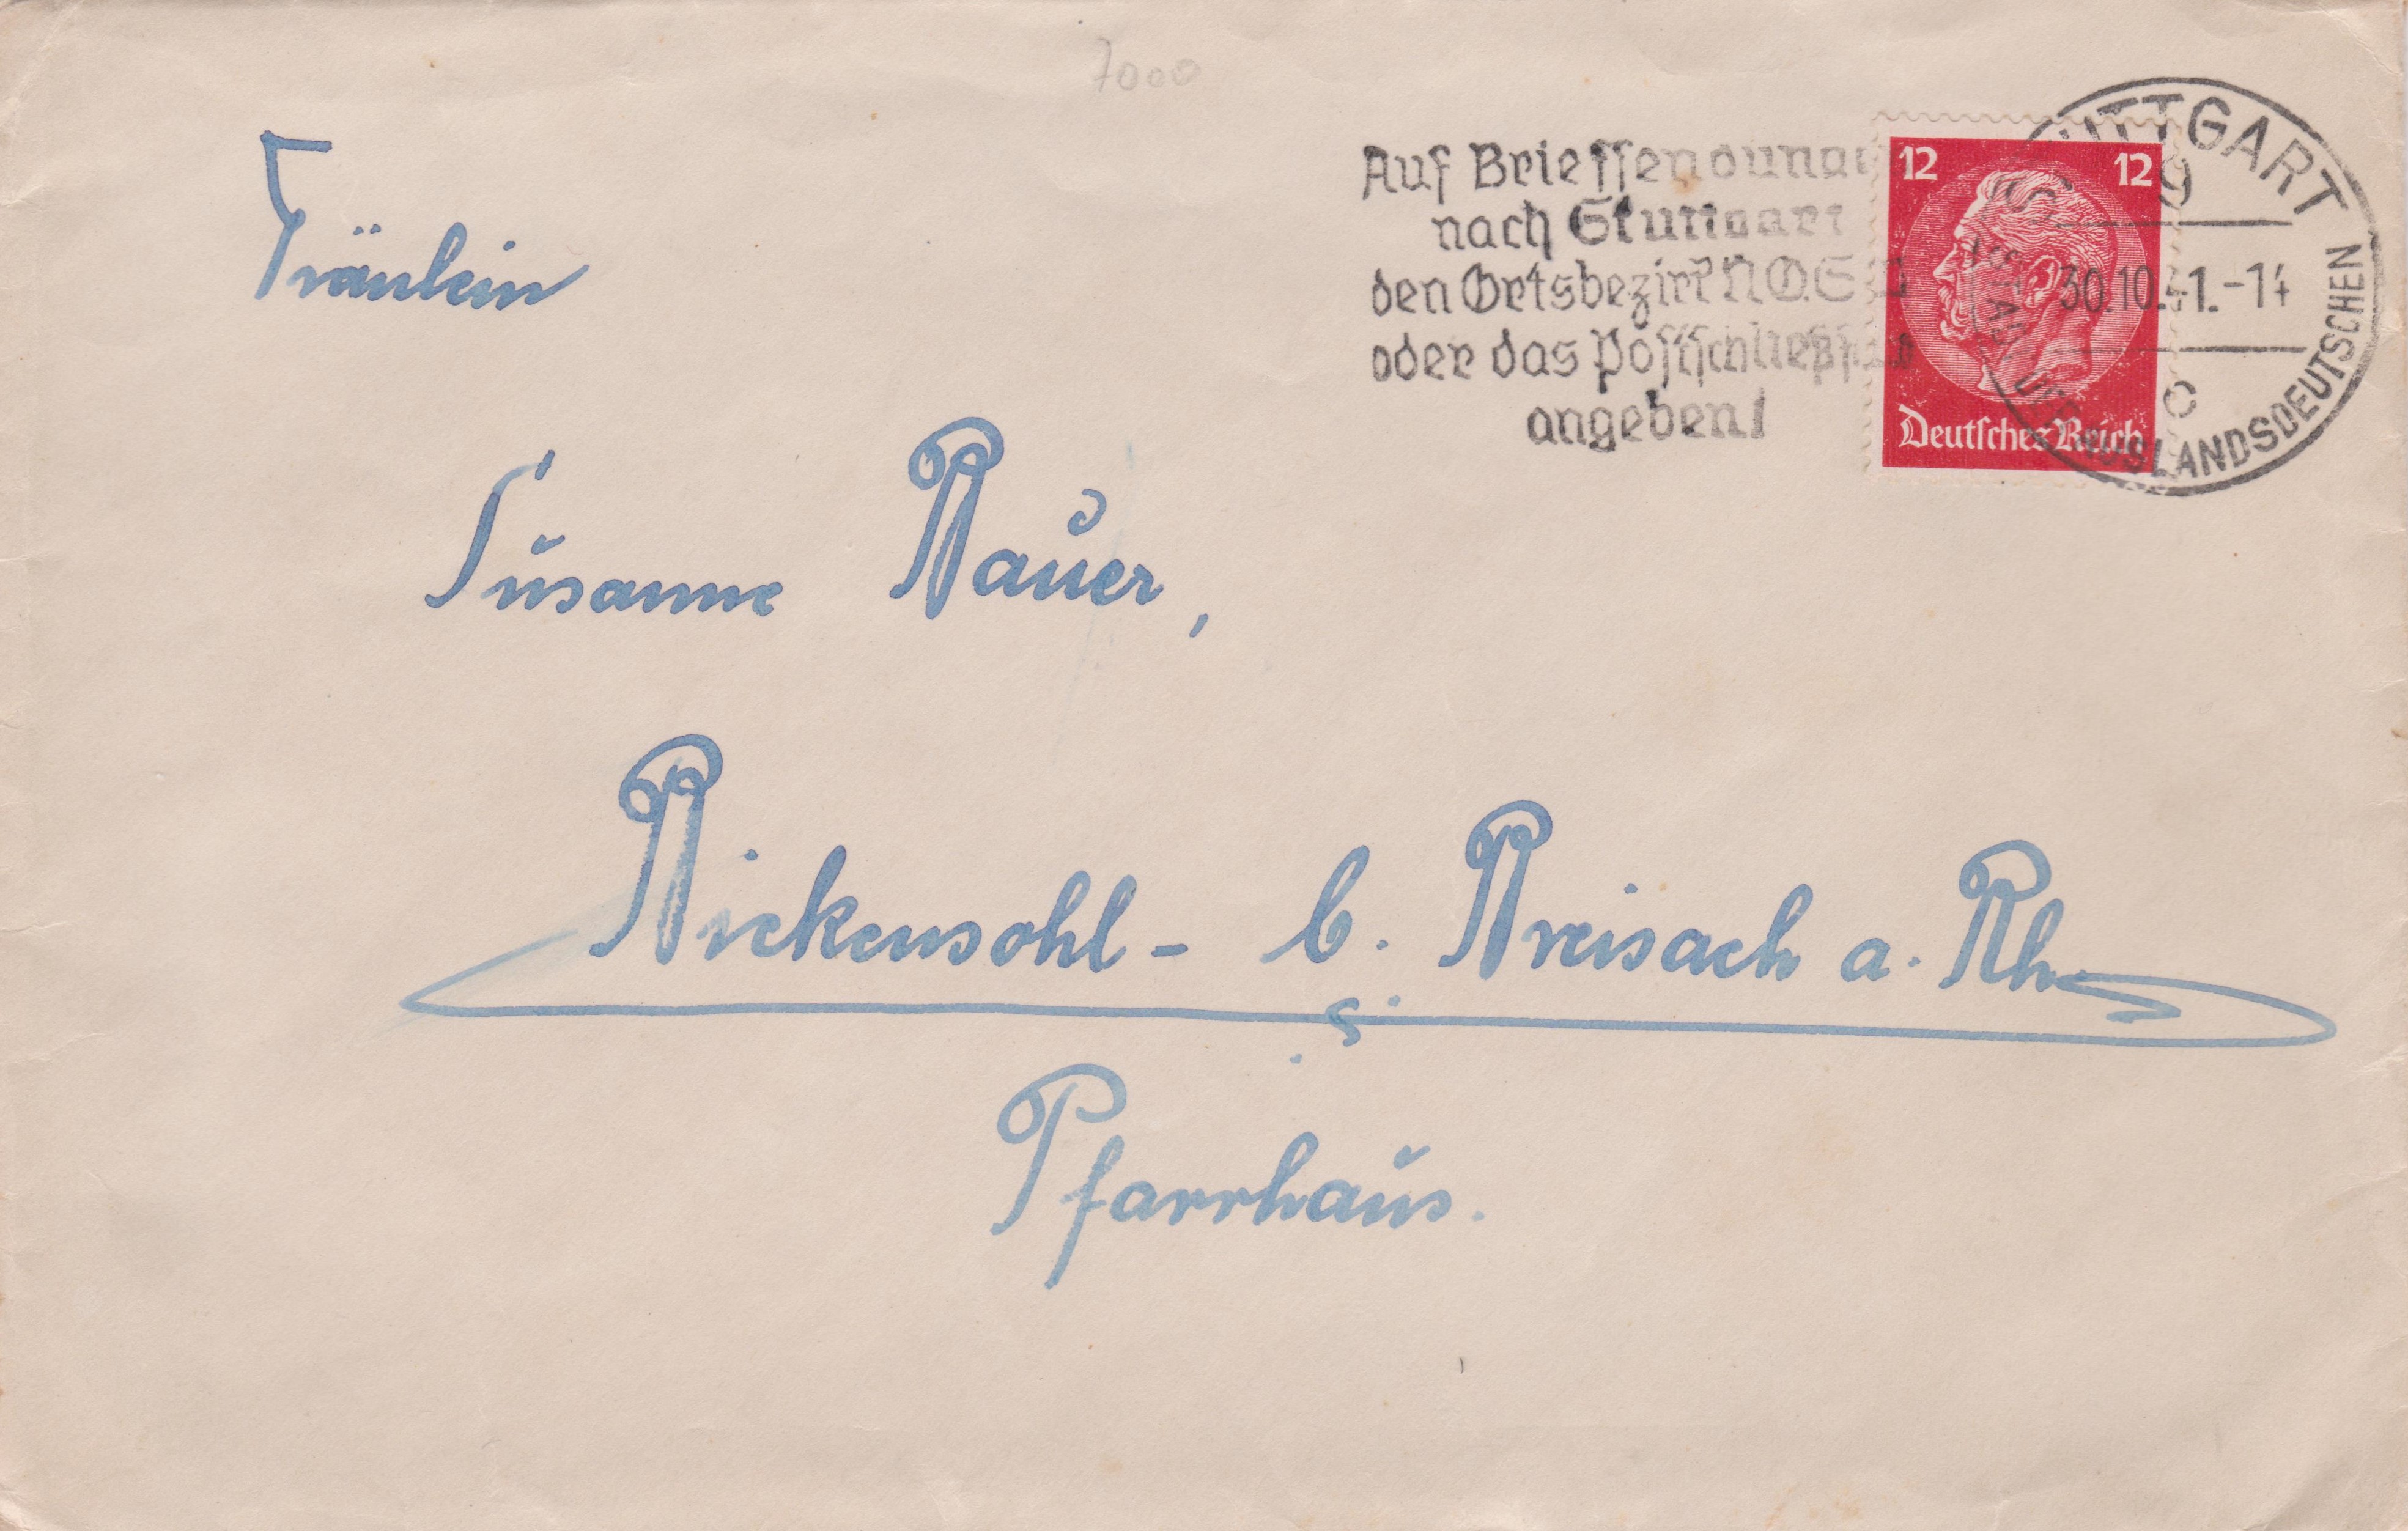 7000
Auf Briefsendungen
nach Stuttgart
den Ortsbezirk N.O.S.W
oder das Postschließfach
angeben!
STUTTGART
9
30.10.41.-14
c
STADT DER AUSLANDSDEUTSCHEN
12 12
Deutsches Reich
Fräulein
Susanne Bauer,
Bickensohl - b. Breisach a. Rh.
Pfarrhaus.